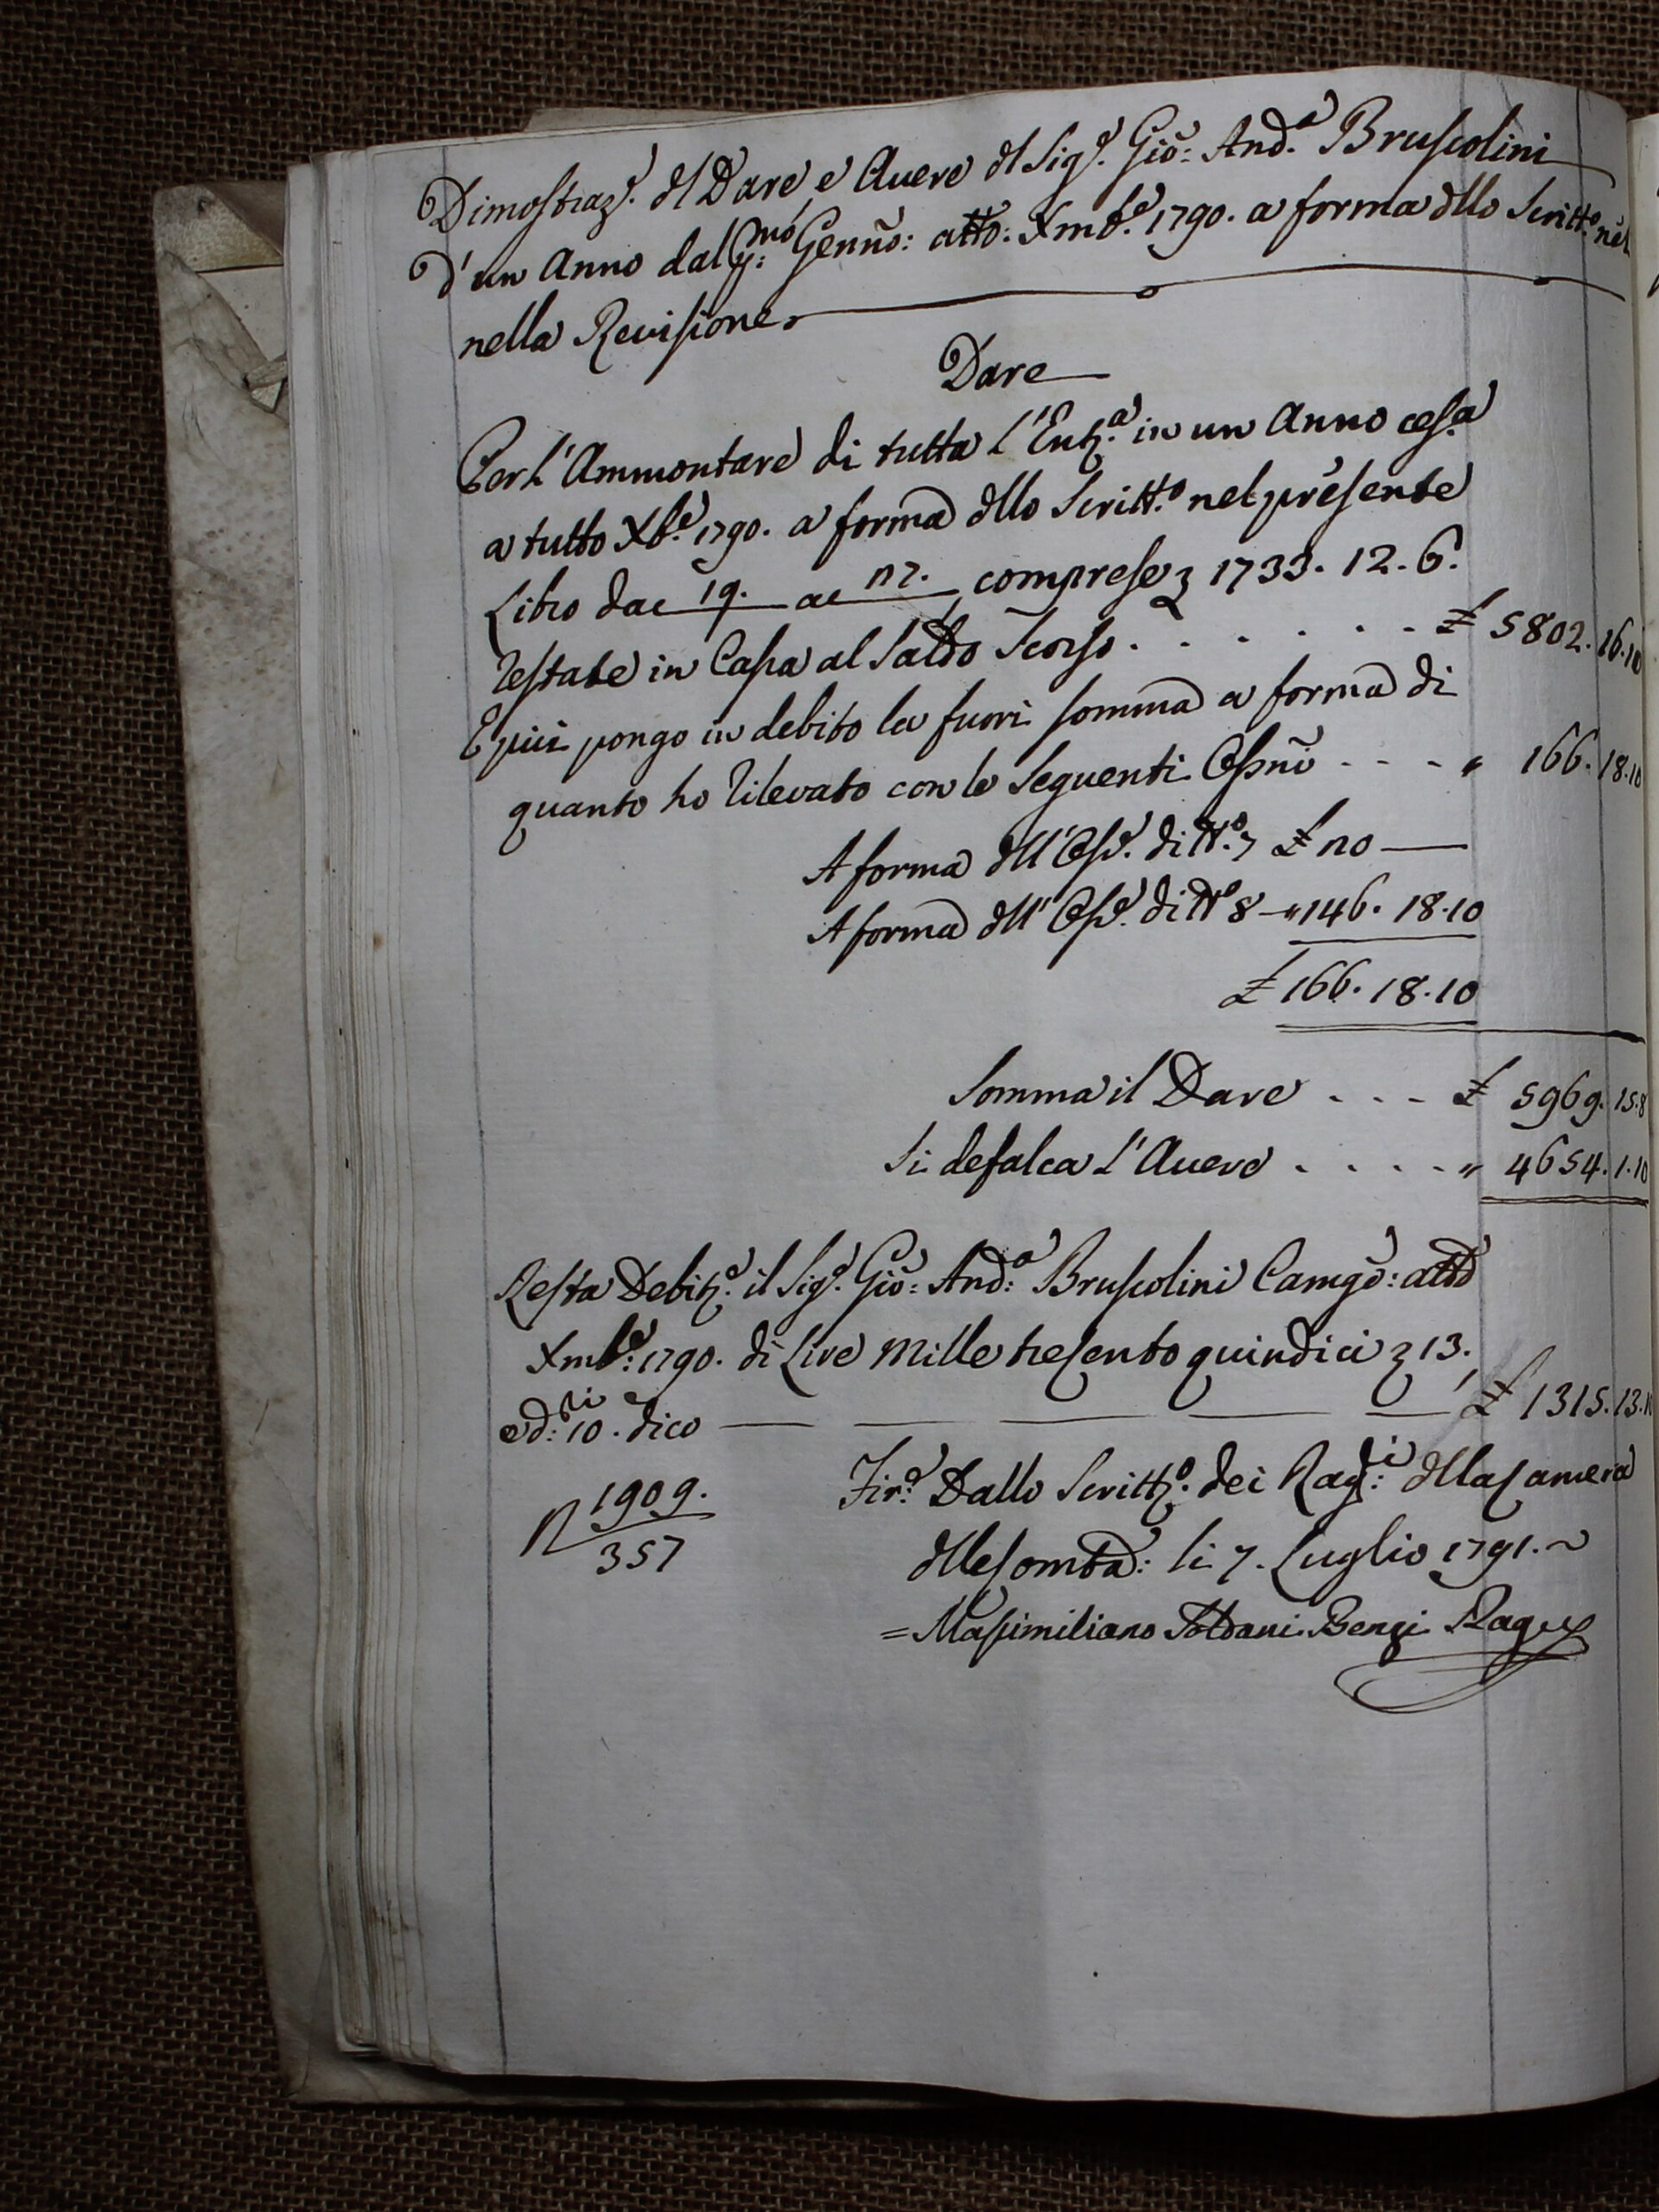 Dimostraz.e dl Dare, e Avere dl Sig.e Gio: And.a Bruscolini
d'un Anno dal p:mo Genno: atto: Xmb.e 1790. a forma dllo Scritt.o nel
nella Revisione
Dare
Per l'Ammontare di tutta l'Entr.a in un Anno
a tutto Xb.e 1790. a forma dllo Scritt.o nel presente
Libro da c 19. a c 27. comprese 3 1733. 12. 6.
restate in Cassa al Saldo Scorso . . . . . . £ 5802. 16. 10
E più pongo in debito la fuori somma a forma di
quanto ho rilevato con le seguenti Ossni - - - " 166. 18. 10
A forma dll'Oss.e di N.o 7 £ 20 —
A forma dll'Oss.e di N.o 8 — " 146. 18. 10
£ 166. 18. 10
Somma il Dare . . . £ 5969. 15. 8
Si defalca l'Avere . . . . " 4654. 1. 10
Resta Debit.e il Sig.e Gio: And:a Bruscolini Camgo: atto
Xmb:e 1790. di Lire Mille trecento quindici 3 13.
e d:ri 10. dico — — — — — £ 1315. 13. 10
N 1909.
357
Fir.e Dallo Scritt.o dei Rag:i dlla Camera
dlle Comtà: li 7. Luglio 1791. ~
= Massimiliano Soldani Benzi Rag.e